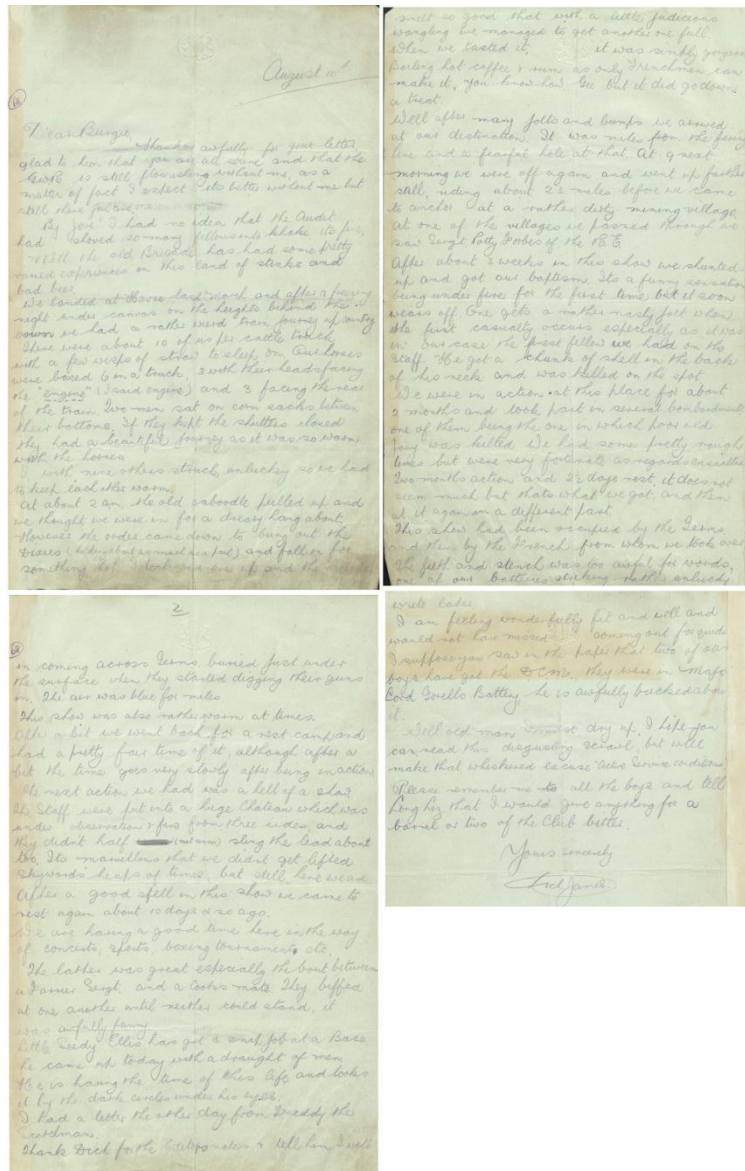 August 10th
Dear Burgie
Thanks awfully for your letter,
glad to hear that you are all serene and that the
GWR is still flourishing without me, as a
matter of fact I expect its better without me but
still there
By jove I had no idea that the Audit
had shoved so many fellows into khaki its fine.
Well the old Brigade has had some pretty
varied experiences in this land of strake and
bad beer.
We landed at Havre last March and after a freezing
night under canvas on the heights behind the
town we had a rather weird train journey up country
There were about 10 of us per cattle truck
with a few wisps of straw to sleep on. Our horses
were boxed 6 in a truck, 3 with their heads facing
the "engine" (I said engine) and 3 facing the rear
of the train. Two men sat on corn sacks between
their bottoms. If they kept the shutters closed
they had a beautiful journey as it was so warm
with the horses
with nine others struck unlucky so we had
to keep each other warm.
At about 2 am the old caboodle pulled up and
we thought we were in for a dreary hang about.
However the order came down to bring out the
Dixies and fall in for
something hot. I took one up and the
smelt so good that with a little judicious
wangling we managed to get another one full.
When we tasted it, it was simply gorgeous
Boiling hot coffee & rum as only Frenchmen can
make it, you know how Gee but it did go down
a treat.
Well after many jolts and bumps we arrived
at our destination. It was miles from the firing
line and a fearful hole at that. At 9 next
morning we were off again and went up further
still, riding about 23 miles before we came
to anchor at a rather dirty mining village
At one of the villages we passed through we
saw Sergt Potty Forbes of the RE
After about 3 weeks in this show we shunted
up and got our baptism. Its a funny sensation
being under fire for the first time but it soon
wears off. One gets a rather nasty jolt when
the first casualty occurs especially as it was
in our case the first fellow we had on the
staff. He got a chunk of shell in the back
of his neck and was killed on the spot
We were in action at this place for about
2 months and took part in several bombardments
one of them being the one in which poor old
Joey was killed We had some pretty rough
times but were very fortunate as regards casualties
Two months action and 2½ days rest, it does not
seem much but thats what we got, and then
at it again in a different part
This show had been occupied by the Germs
and then by the French from whom we took over
The filth and stench was too awful for words,
one of our batteries striking rather unlucky
2
in coming across Germs buried just under
the surface when they started digging their guns
in. The air was blue for miles
This show was also rather warm at times.
After a bit we went back for a rest camp and
had a pretty fair time of it, although after a
bit the time goes very slowly after being in action
The next action we had was a hell of a show.
The Staff were put into a huge Chateau which was
under observation & fire from three sides, and
they didnt half sling the lead about
too. Its marvellous that we didn't get lifted
skywards heaps of times, but still here we are
After a good spell in this show we came to
rest again about 10 days or so ago.
We are having a good time here in the way
of concerts, sports, boxing tournaments etc.
The latter was great especially the bout between
a Farrier Sergt. and a Cooks mate. They biffed
at one another until neither could stand, it
was awfully funny
Little Seedy Ellis has got a snip job at a Base
he came up today with a draught of men
He is having the time of his life and looks
it by the dark circles under his eyes.
I had a letter the other day from Freddy the
Scotchman.
Thank Dick for the & tell him I will
write later.
I am feeling wonderfully fit and well and
would not have missed coming out for quids
I suppose you saw in the paper that two of our
boys have got the DCM. they were in Major
Lord Gorells Battery, he is awfully bucked about
it.
Well old man I must dry up. I hope you
can read this disgusting scrawl, but will
make that whiskered excuse 'Active Service conditions'
Please remember me to all the boys and tell
Long Liz that I would give anything for a
barrel or two of the Club bitter.
Yours sincerely